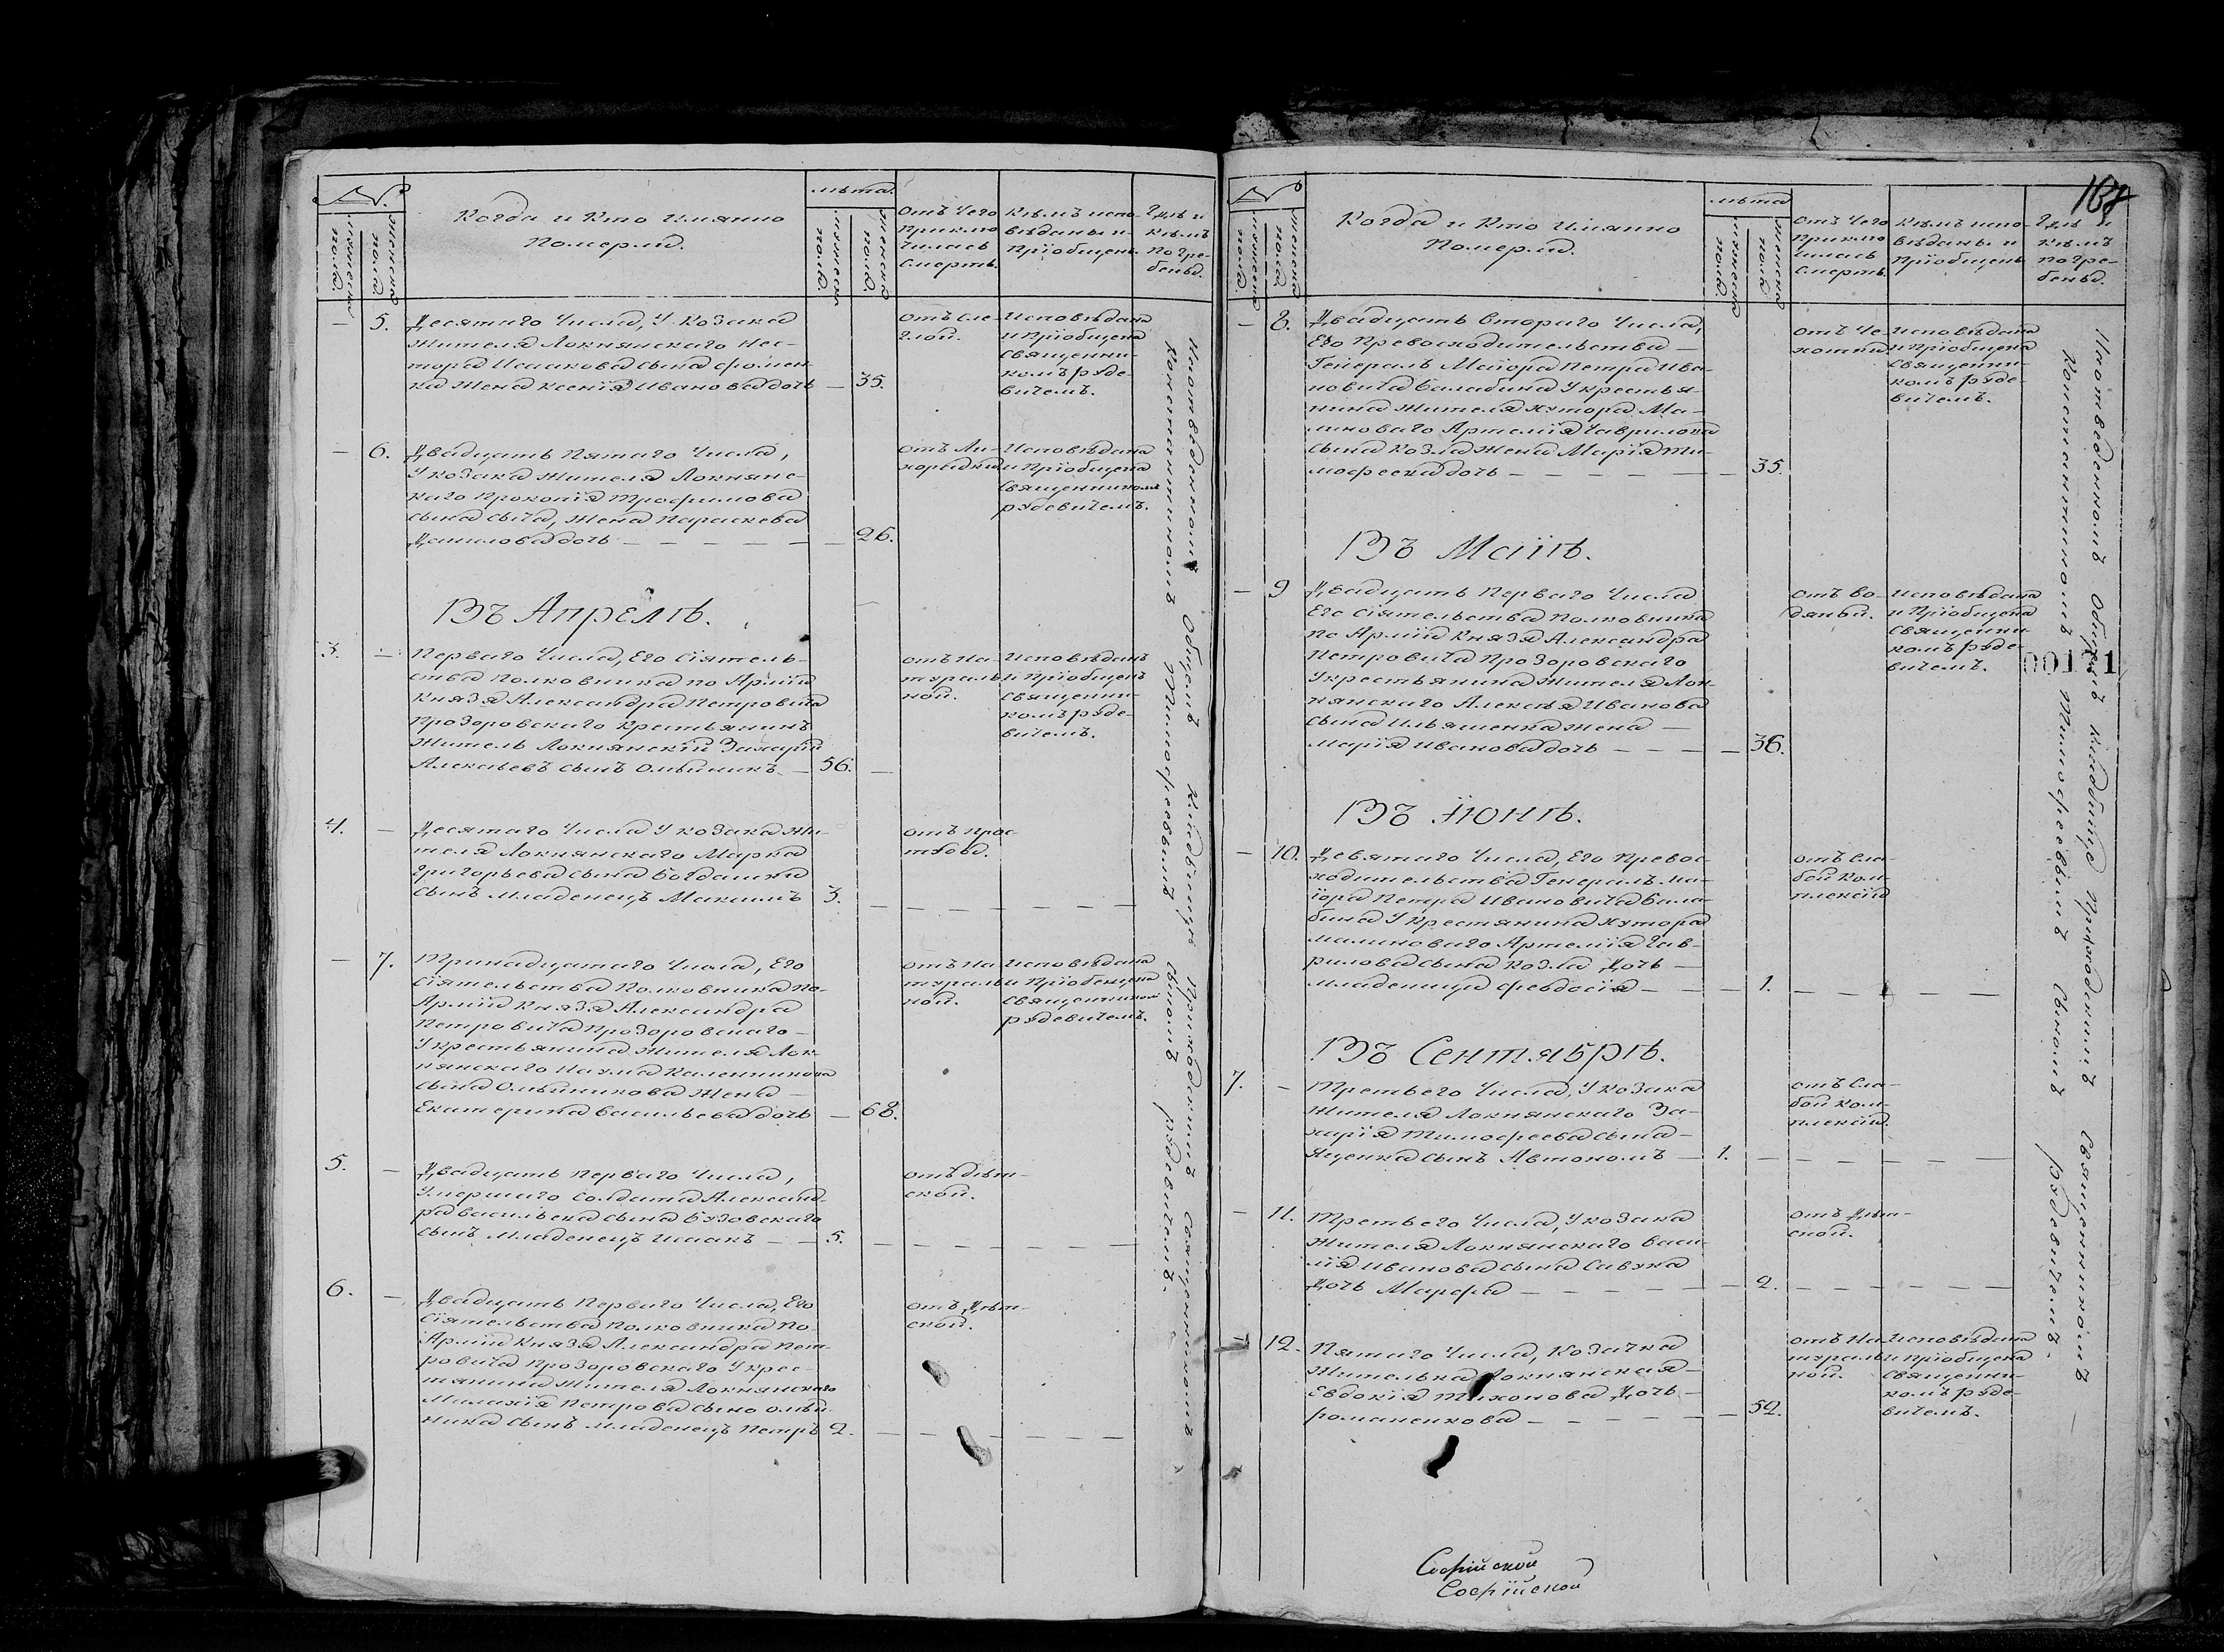 №.
мужеска пола.
женска пола.
Когда и Кто имянно
Померли.
лѣта.
мужеска пола.
женска пола.
Отъ Чего
Приклю
чилась
Смерть.
Кѣмъ испо-
вѣданы и
Пріобщены
Гдѣ и
Кѣмъ
Погре-
бены.
— 5. Десятаго Числа, У Козака
Жителя Локнянскаго Нес-
тора Исаакова сына Фомен-
ка Жена Ксенія Иванова дочь — 35.
Отъ
Исповѣдана
и Пріобщена
Священни-
комъ Руде-
вичемъ.
— 6. Двадцать Пятаго Числа,
У козака Жителя Локнянс-
каго Прокопія Трофимова
сына Сыча, Жена Параскева
Данилова дочь — — — — — 26.
Отъ Ли-
хорадки
Исповѣдана
и Пріобщена
Священникомъ
Рудевичемъ.
Въ Апрѣлѣ.
3. — Перваго Числа, Его Сіятель-
ства Полковника по Арміи
Князя Александра Петровича
Прозоровскаго Крестьянинъ
Житель Локнянскій Захарій
Алексѣевъ сынъ Олейникъ — 56. —
Отъ На-
тураль-
ной.
Исповѣданъ
и Пріобщенъ
Священни-
комъ Руде-
вичемъ.
4. — Десятаго Числа У козака Жи-
теля Локнянскаго Марка
Григорьева сына Богдашки
Сынъ Младенецъ Максимъ 3. — — — — — —
Отъ Прос-
туды.
— 7. Тринадцатаго Числа, Его
Сіятельства Полковника По
Арміи Князя Александра
Петровича Прозоровскаго —
У Крестьянина Жителя Лок-
нянскаго Наума Каленникова
сына Олейникова Жена —
Екатерина Васильева дочь — 68.
Отъ На
тураль
ной.
Исповѣдана
и Пріобщена
Священникомъ
Рудевичемъ.
5. — Двадцать Перваго Числа,
Умершаго Солдата Александ-
ра Васильева сына Бузовскаго
Сынъ Младенецъ Исаакъ — — 5. — — — — — —
Отъ дѣт-
ской.
6. — Двадцать Перваго Числа, Его
Сіятельства Полковника По
Арміи Князя Александра Пет-
ровича Прозоровскаго У Крес-
тянина Жителя Локнянскаго
Малахія Петрова сына Олей-
ника Сынъ Младенецъ Петръ 2. — — — — — —
Отъ Дѣт-
ской.
На отведенномъ Общемъ Кладбищѣ Приходскимъ Священникомъ
Константиномъ Тимофѣевымъ Сыномъ Рудевичемъ.
168
№
мужеска пола.
женска пола.
Когда и Кто Имянно
Померли.
лѣта
мужеска пола.
женска пола.
Отъ Чего
Приклю
чилась
Смерть.
Кѣмъ испо-
вѣданы и
Пріобщены
Гдѣ и
Кѣмъ
Погре-
бены.
— 8. Двадцать Втораго Числа,
Его Превосходительства —
Генералъ Маіора Петра Ива-
новича Балабина У Крестья-
нина Жителя Хутора Ма-
линоваго Артемія Гаврилова
сына Козла Жена Марія Ти-
мофеева дочь — — — — — 35.
Отъ Че-
хотки
Исповѣдана
и Пріобщена
Священни-
комъ Руде-
вичемъ.
Въ Маіѣ.
— 9 Двадцать Перваго Числа
Его Сіятельства Полковника
По Арміи Князя Александра
Петровича Прозоровскаго
У Крестьянина Жителя Лок-
нянскаго Алексѣя Иванова
сына Ильяшенка Жена —
Марія Иванова дочь — — — — 36.
Отъ Во-
дяной.
Исповѣдана
и Пріобщена
Священни-
комъ Руде-
вичемъ.
00171
Въ Іюнѣ.
— 10. Девятаго Числа, Его Превос-
ходительства Генералъ Ма-
іора Петра Ивановича Бала-
бина У Крестянина Хутора
Малиноваго Артемія Гав-
рилова сына Козла Дочь —
Младеница Феодосія — — — 1. — — — — — —
Отъ Сла-
бой Ком-
плексіи
Въ Сентябрѣ.
7. — Третьего Числа, У козака
Жителя Локнянскаго За-
харія Тимофеева сына —
Яценка сынъ Автономъ — 1. — — — — — — —
Отъ Сла-
бой Ком-
плексіи.
— 11. Третьего Числа, У козака
Жителя Локнянскаго Васи-
лія Иванова сына Савука
Дочь Марфа — — — — — 2. — — — — — —
Отъ Дѣт-
ской.
12. Пятаго Числа, Козачка
Жителька Локнянская —
Евдокія Тихонова Дочь —
Романенкова — — — — — — 52.
Отъ На
тураль
ной.
Исповѣдана
и Пріобщена
Священни-
комъ Руде-
вичемъ.
На отведенномъ Общемъ Кладбищѣ Приходскимъ Священникомъ —
Константиномъ Тимофеевымъ Сыномъ Рудевичемъ.
Софійской
Софійской